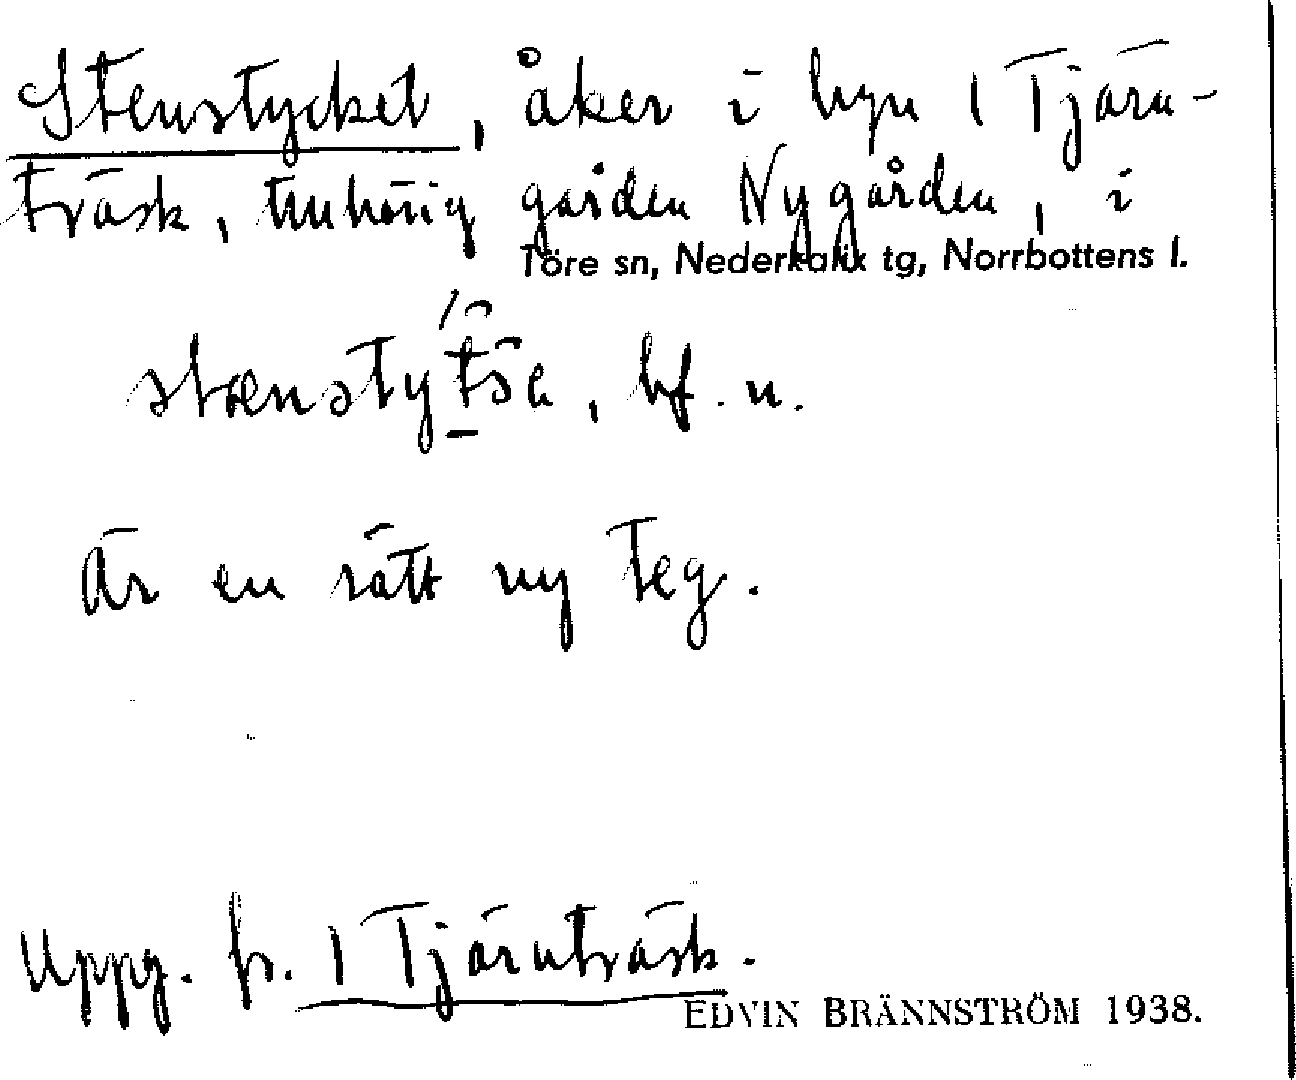 Stenstycket, åker i byn 1 Tjärn-
träsk, tillhörig gården Nygården, i
Töre sn, Nederkalix tg, Norrbottens l.
stænsty̆tsa, bf. n.
Är en rätt ny teg.
Uppg. fr. 1 Tjärnträsk.
EDVIN BRÄNNSTRÖM 1938.